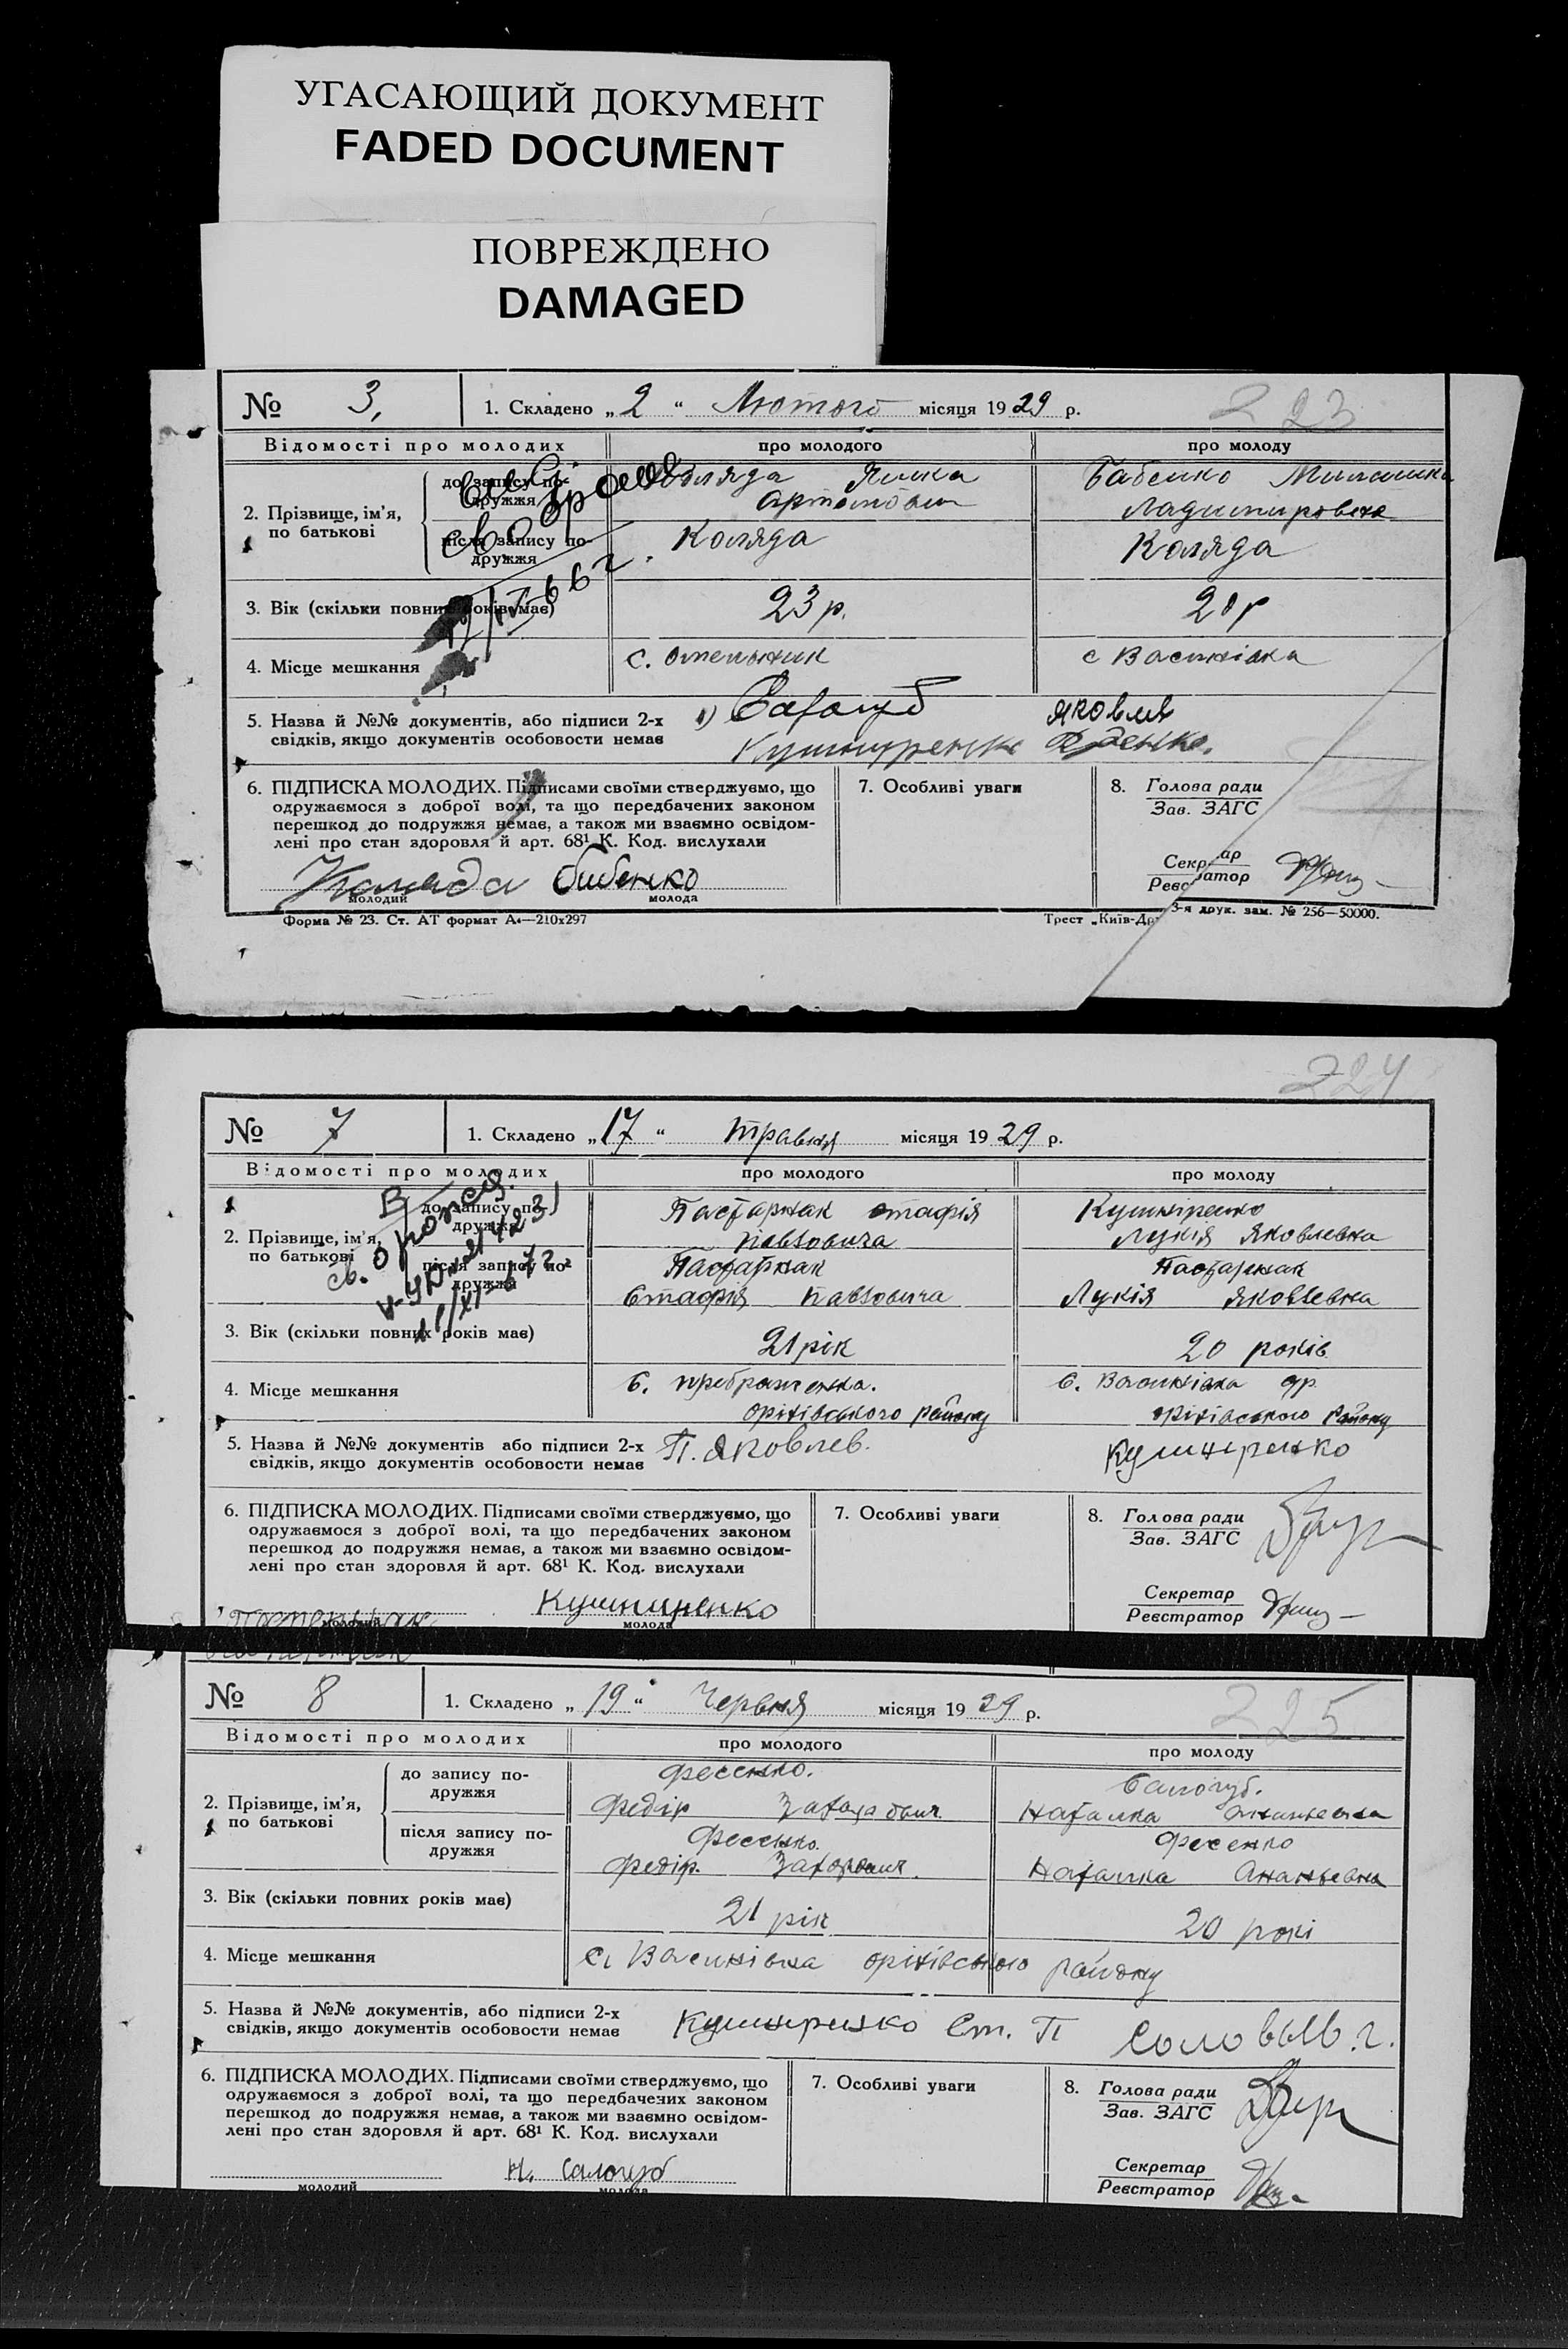 УГАСАЮЩИЙ ДОКУМЕНТ
FADED DOCUMENT
ПОВРЕЖДЕНО
DAMAGED
№ 3, 1. Складено „2“ Лютого місяця 1929 р. 223
Відомості про молодих про молодого про молоду
2. Прізвище, ім'я, по батькові
до запису подружжя Коляда Бабенко
після запису подружжя Коляда Коляда
3. Вік (скільки повних років має) 23 р. 20 р
4. Місце мешкання с. Омельник с Васинівка
5. Назва й №№ документів, або підписи 2-х
свідків, якщо документів особовости немає
6. ПІДПИСКА МОЛОДИХ. Підписами своїми стверджуємо, що
одружаємося з доброї волі, та що передбачених законом
перешкод до подружжя немає, а також ми взаємно освідом-
лені про стан здоровля й арт. 68¹ К. Код. вислухали
7. Особливі уваги
8. Голова ради
Зав. ЗАГС
Секретар
Реєстратор
Коляда Бабенко
молодий молода
Форма № 23. Ст. АТ формат А4—210х297 Трест „Київ-Др 3-я друк. зам. № 256—50000.
224
№ 7 1. Складено „17“ травня місяця 1929 р.
Відомості про молодих про молодого про молоду
2. Прізвище, ім'я, по батькові
до запису подружжя Кушніренко
Лукія Яковлевна
після запису подружжя
Лукія Яковлевна
3. Вік (скільки повних років має) 21 рік 20 років
4. Місце мешкання с. Преображенка. с. Васинівка
оріхівського району оріхівського району
5. Назва й №№ документів або підписи 2-х П. Яковлев. Кушніренко
свідків, якщо документів особовости немає
6. ПІДПИСКА МОЛОДИХ. Підписами своїми стверджуємо, що
одружаємося з доброї волі, та що передбачених законом
перешкод до подружжя немає, а також ми взаємно освідом-
лені про стан здоровля й арт. 68¹ К. Код. вислухали
7. Особливі уваги
8. Голова ради
Зав. ЗАГС
Секретар
Реєстратор
Кушниренко
молодий молода
№ 8 1. Складено „19“ Червня місяця 1929 р. 225
Відомості про молодих про молодого про молоду
2. Прізвище, ім'я, по батькові
до запису подружжя Фесенко.
Федір Наталка
після запису подружжя Фесенко. Фесенко
Федір. Наталка Ананьевна
3. Вік (скільки повних років має) 21 рік 20 рокі
4. Місце мешкання с. Васинівка оріхівського району
5. Назва й №№ документів, або підписи 2-х
свідків, якщо документів особовости немає
6. ПІДПИСКА МОЛОДИХ. Підписами своїми стверджуємо, що
одружаємося з доброї волі, та що передбачених законом
перешкод до подружжя немає, а також ми взаємно освідом-
лені про стан здоровля й арт. 68¹ К. Код. вислухали
7. Особливі уваги
8. Голова ради
Зав. ЗАГС
Секретар
Реєстратор
Н. Салогуб
молодий молода